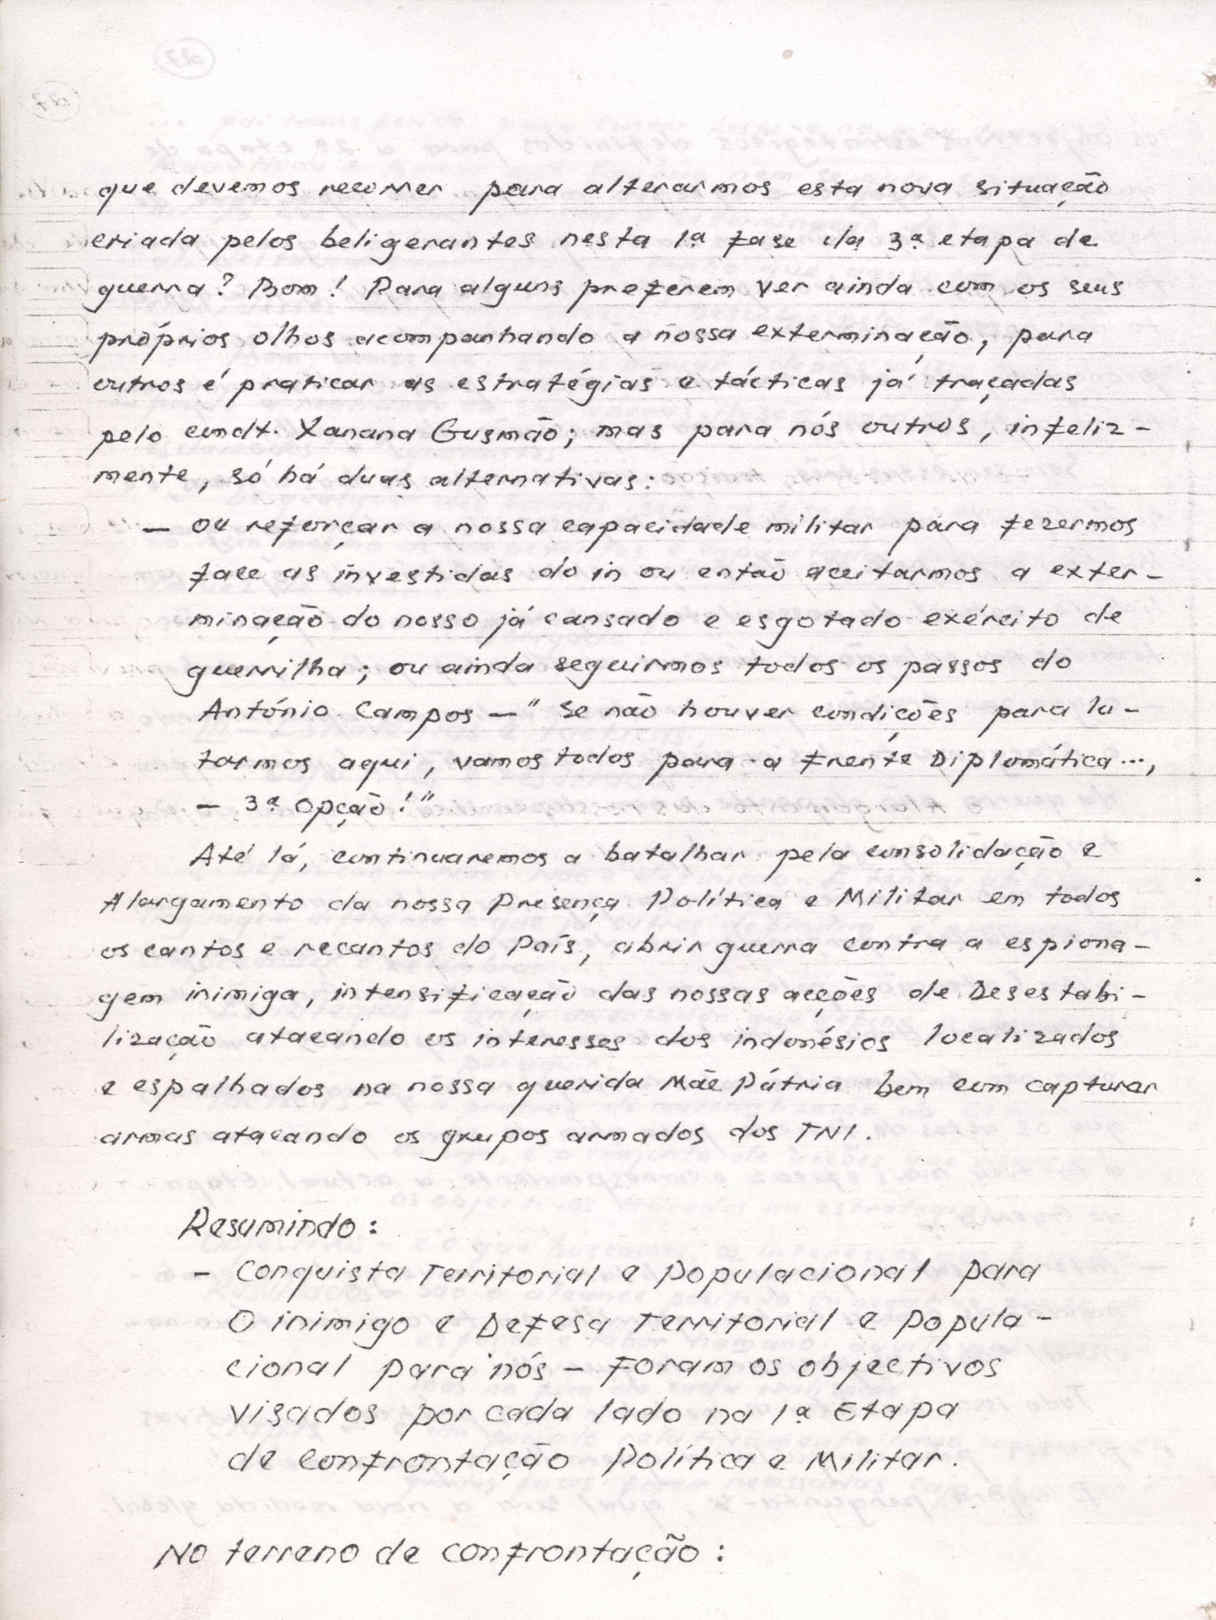 que devemos recorrer para alterarmos esta nova situação
criada pelos beligerantes nesta 1ª fase da 3ª etapa de
guerra? Bom! Para alguns preferem ver ainda com os seus
próprios olhos acompanhando a nossa exterminação, para
outros é praticar as estratégias e tácticas já traçadas
pelo comdt. Xanana Gusmão; mas para nós outros, infeliz-
mente, só há duas alternativas:
— ou reforçar a nossa capacidade militar para fezermos
face as investidas do in ou então aceitarmos a exter-
minação do nosso já cansado e esgotado exército de
guerrilha; ou ainda seguirmos todos os passos do
António Campos — " Se não houver condições para lu-
tarmos aqui, vamos todos para a Frente Diplomática...,
— 3ª Opção!"
Até lá, continuaremos a batalhar pela consolidação e
Alargamento da nossa Presença Política e Militar em todos
os cantos e recantos do País, abrir guerra contra a espiona-
gem inimiga, intensificação das nossas acções de Desestabi-
lização atacando os interesses dos indonésios localizados
e espalhados na nossa querida Mãe Pátria bem com capturar
armas atacando os grupos armados dos TNI.
Resumindo:
- Conquista Territorial e Populacional para
O inimigo e Defesa Territorial e Popula-
cional para nós - Foram os objectivos
visados por cada lado na 1ª Etapa
de Confrontação Política e Militar.
No terreno de confrontação: